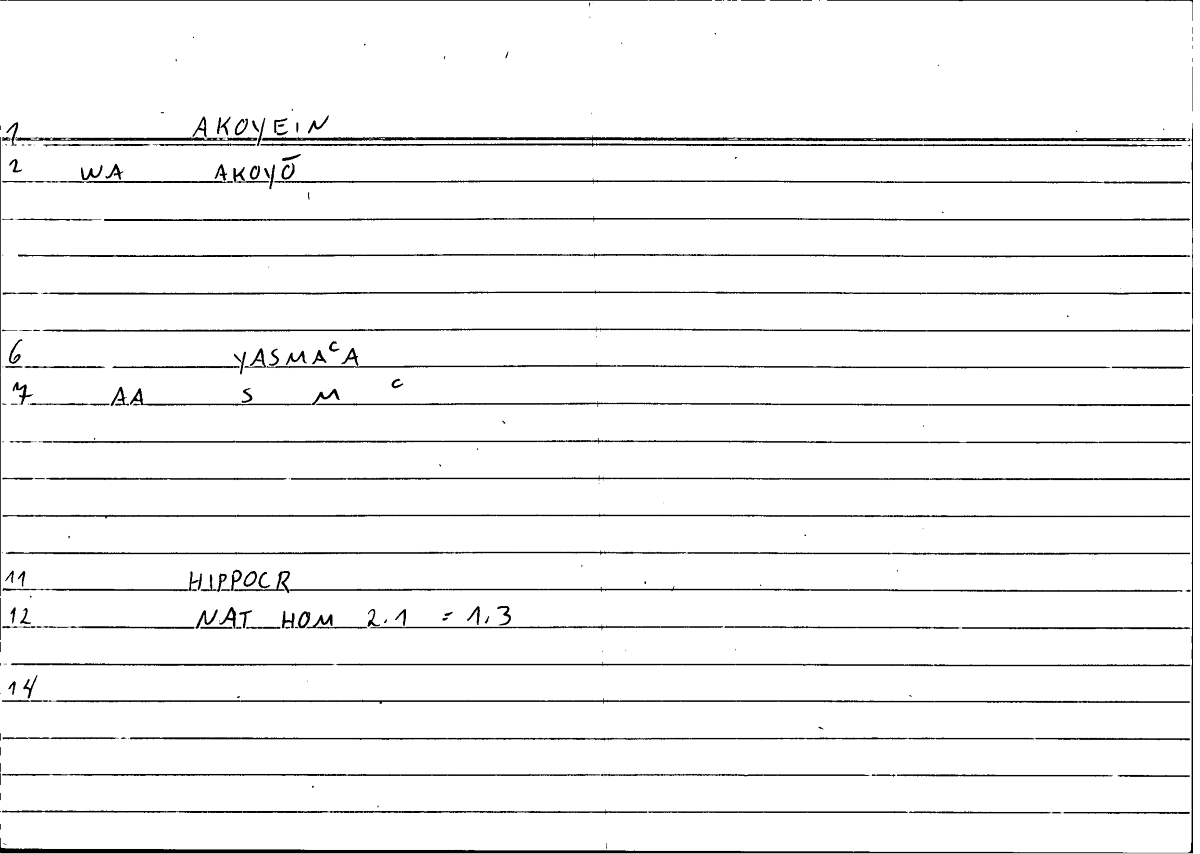 1 AKOYEIN
2 WA AKOYŌ
6 YASMAᶜA
7 AA S M ᶜ
11 HIPPOCR
12 NAT HOM 2.1 = 1.3
14